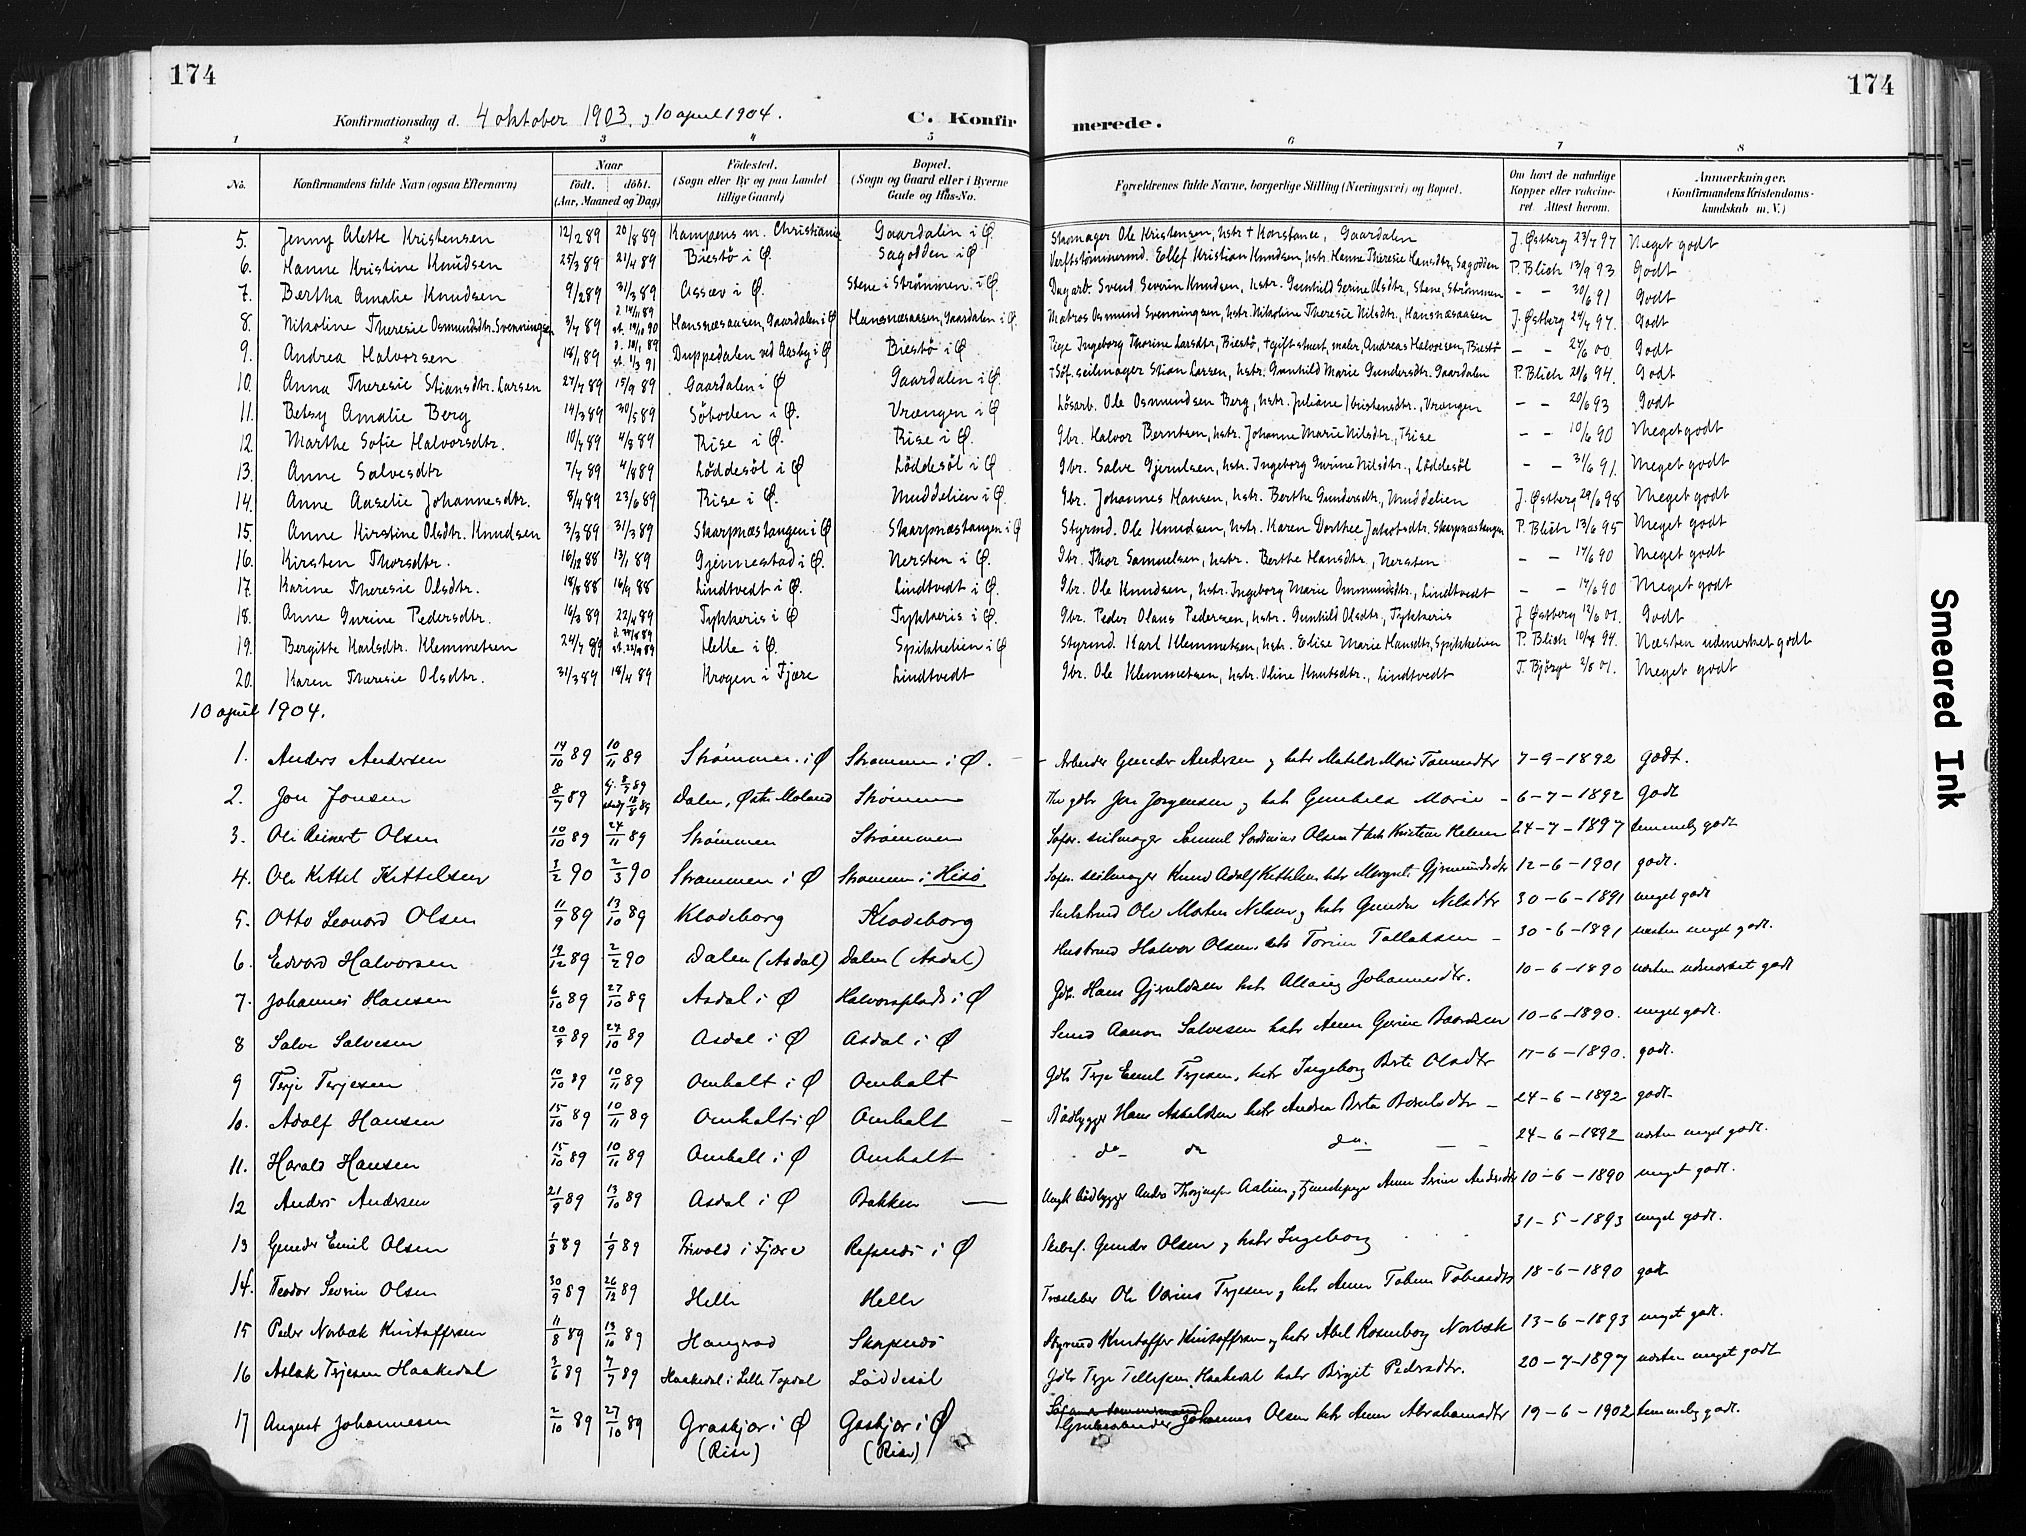 174
174
Konfirmationsdag d. 4 oktober 1903. og 10 april 1904.
C. Konfirmerede.
1 2 3 4 5 6 7 8
No. Konfirmandens fulde Navn (ogsaa Efternavn) Naar født. døbt. (Aar, Maaned og Dag) Fødested. (Sogn eller By og paa Landet tillige Gaard) Bopæl. (Sogn og Gaard eller i Byerne Gade og Hus-No. Forældrenes fulde Navne, borgerlige Stilling (Næringsvei) og Bopæl. Om havt de naturlige Kopper eller vaccineret. Attest herom. Anmerkninger. (Konfirmandens Kristendomskundskab m. V.)
5. Jenny Alette Kristensen 12/2 89 20/8 89 Kampens m. Christiania Gaardalen i Ø. Skomager Ole Kristensen, hstr + Konstance, Gaardalen J. Østberg 23/7 97 Meget godt
6. Hanne Kristine Knudsen 25/3 89 21/4 89 Biestø i Ø. Sagodden i Ø Verftstømmermd. Ellef Kristian Knudsen, hstr. Hanne Theresie Hansdtr, Sagodden P. Blich 13/9 93 Godt
7. Bertha Amalie Knudsen 9/2 89 31/3 89 Assæv i Ø. Stene i Strømmen i Ø. Dagarb. Svend Severin Knudsen, hstr. Gunhild Serine Olsdtr, Stene, Strømmen - - 30/6 91 Godt
8. Nikoline Theresie Osmundsdtr. Svenningsen 3/7 89 Hansnæsaasen, Gaardalen i Ø Hansnæsaasen, Gaardalen i Ø. Matros Osmund Svenningsen, hstr. Nikoline Theresie Nilsdtr., Hansnæsaasen J. Østberg 24/7 97. Godt
9. Andrea Halvorsen 18/1 89 Duppedalen ved Aasby i Ø Biestø i Ø. Pige Ingeborg Thorine Larsdtr, Biestø, + gift stuert, maler, Andreas Halvorsen, Biestø - - 24/6 00. Godt
10. Anna Theresie Stiansdtr. Larsen 27/7 89 15/9 89 Gaardalen i Ø Gaardalen i Ø. +Søf. seilmager Stian Larsen, hstr. Gunhild Marie Gundersdtr. Gaardalen P. Blich 20/6 94. Godt
11. Betsy Amalie Berg 14/3 89 30/5 89 Søboden i Ø. Vrængen i Ø Løsarb. Ole Osmundsen Berg, hstr. Juliane Kristensdtr., Vrængen - - 20/6 93 Godt
12. Marthe Sofie Halvorsdtr. 10/7 89 4/8 89 Rise i Ø. Rise i Ø. Gbr. Halvor Berntsen, hstr. Johanne Marie Nilsdtr., Rise - - 10/6 90 Meget godt
13. Anne Salvesdtr 7/7 89 4/8 89 Løddesøl i Ø Løddesøl i Ø. Gbr. Salve Gjerulsen, hstr. Ingeborg Gurine Nilsdtr., Løddesøl - - 31/6 91. Meget godt
14. Anne Aaselie Johannesdtr. 8/4 89 23/6 89 Rise i Ø. Muddelien i Ø. Gbr. Johannes Hansen, hstr. Berthe Gundersdtr., Muddelien J. Østberg 29/6 98 Meget godt
15. Anne Kirstine Olsdtr. Knudsen 3/3 89 31/3 89 Skarpnæstangen i Ø Skarpnæstangen i Ø Styrmd. Ole Knudsen, hstr. Karen Dorthee Jakobsdtr. Skarpnæstangen P. Blich 13/6 95 Meget godt
16. Kirsten Thorsdtr. 16/12 88 13/1 89 Gjennestad i Ø. Nersten i Ø. Gbr. Thor Samuelsen, hstr. Berthe Hansdtr., Nersten - - 17/6 90 Meget godt
17. Karine Theresie Olsdtr. 18/8 88 16/9 88 Lindtvedt i Ø. Lindtvedt i Ø. Gbr. Ole Knudsen, hstr. Ingeborg Marie Ommundsdtr., Lindtvedt - - 17/6 90 Meget godt
18. Anne Gurine Pedersdtr. 16/3 89 22/4 89 Tykkeris i Ø Tykkeris i Ø. Gbr. Peder Olaus Pedersen, hstr. Gunhild Olsdtr., Tykkeris J. Østberg 13/6 01. Godt
19. Bergitte Karlsdtr. Klemmetsen 24/7 89 Helle i Ø. Spikkelien i Ø Styrmd. Karl Klemmetsen, hstr. Elise Marie Hansdtr, Spikkelien P. Blich 10/7 94. Næsten udmerket godt
20. Karen Theresie Olsdtr. 31/3 89 18/4 89 Krogen i Fjære Lindtvedt Gbr. Ole Klemmetsen, hstr. Oline Knutsdtr., Lindtvedt T. Bjørge 3/8 01. Meget godt
10 april 1904.
1. Anders Andersen 14/10 89 10/11 89 Strømmen i Ø Strømmen i Ø. Arbeider Gunder Andersen og hstr Matilde Marie 7-9-1892 godt.
2. Jon Jonsen 8/7 89 Dalen, Østre Moland Strømmen Jon Jørgensen og hstr Gunhild Marie - 6-7-1892 godt
3. Ole Reinert Olsen 10/10 89 24/11 89 Strømmen Strømmen Søfar. seilmager Samuel Olsen + hstr Kristine Helene 24-7-1897 temmelig godt
4. Ole Kittel Kittelsen 3/2 90 2/3 90 Strømmen i Ø Strømmen i Hisø Søfar. seilmager Knud Adolf Kittelsen hstr Margrete Gjermundsdtr 12-6-1901 godt.
5. Otto Leonard Olsen 11/9 89 13/10 89 Klodeborg Klodeborg Ole Morten Nilsen og hstr Gunda Nilsdtr 30-6-1891 meget godt
6. Edvard Halvorsen 19/12 89 2/2 90 Dalen (Asdal) Dalen (Asdal) Husmand Halvor Olsen, hstr Torine Tallaksen - 30-6-1891 næsten meget godt.
7. Johannes Hansen 6/10 89 27/10 89 Asdal i Ø Halvorsplads i Ø Gdb. Hans Gjeruldsen hstr Johannesdtr. 10-6-1890 næsten udmærket godt
8 Salve Salvesen 20/9 89 27/10 89 Asdal i Ø Asdal i Ø Aanon Salvesen hstr Anne Gurine 10-6-1890. meget godt.
9 Terje Terjesen 10/10 89 10/11 89 Omholt i Ø Omholt Gdb Terje Emil Terjesen, hstr Ingeborg Berte Olsdtr 17-6-1890. godt.
10. Adolf Hansen 15/10 89 10/11 89 Omholt i Ø Omholt - Baadbygger Hans Askildsen hstr Andrea Berta - 24-6-1892 godt
11. Harald Hansen 15/10 89 10/11 89 Omholt i Ø Omholt do do do. 24-6-1892 næsten meget godt.
12 Anders Andersen 21/9 89 13/10 89 Asdal i Ø Bakken Ungk. baadbygger Anders Aalien, Anne Serine Andersdtr 10-6-1890 meget godt.
13 Gunder Emil Olsen 1/8 89 1/9 89 Frivold i Fjære Refsnes i Ø Skibsf. Gunder Olsen og hstr Ingeborg 31-5-1893 meget godt.
14. Teodor Severin Olsen 30/9 89 26/12 89 Helle Helle Ole Terjesen og hstr Anne Tobiasdtr 18-6-1890 godt
15 Peder Norbæk Kristoffersen 11/8 89 13/10 89 Skarpnes Styrmd Kristoffer Kristoffersen og hstr Abel Rosenborg Norbæk 13-6-1893 meget godt.
16 Aslak Terjesen Haakedal 3/6 89 7/7 89 Haakedal i Lille Topdal Løddesøl Gdb Terje Tellefsen Haakedal hstr Birgit Pedersdtr. 20-7-1897 næsten meget godt
17 August Johannesen 2/10 89 27/10 89 Graskjær i Ø (Rise) Gaskjær i Ø (Rise) Grubearbeider Johannes Olsen hstr Anne Abrahamsdtr 19-6-1902 temmelig godt.
Smeared Ink